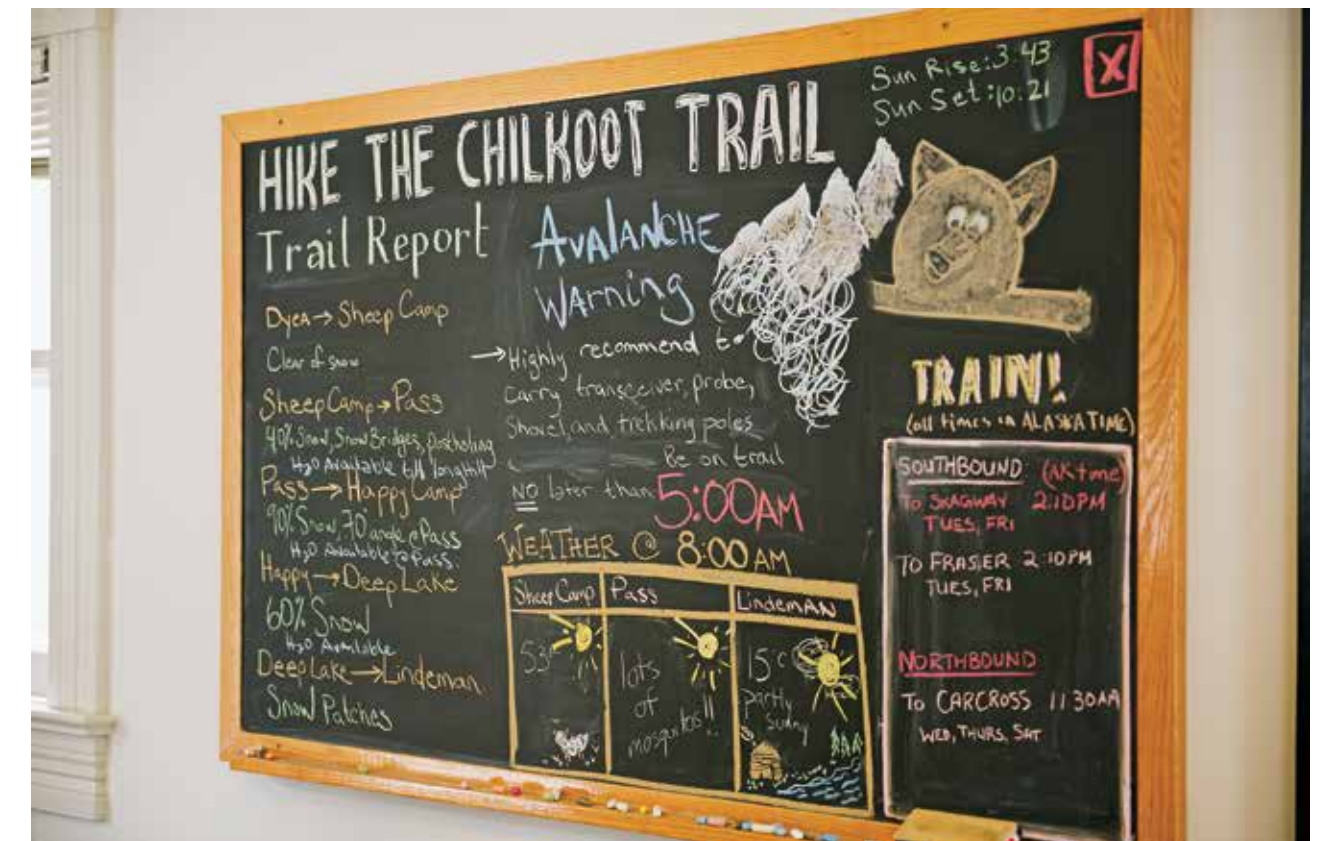 HIKE THE CHILKOOT TRAIL
Trail Report
Dyea → Sheep Camp
Clear of snow
Sheep Camp → Pass
40% Snow, Snow Bridges, postholing
H2O Available till longhill
Pass → Happy Camp
90% Snow, 70° angle @ Pass
H2O Available to Pass.
Happy → Deep Lake
60% Snow
H2O Available
Deep Lake → Lindeman
Snow Patches
AVALANCHE
WARNING
→ Highly recommend to
carry transceiver, probe,
Shovel, and trekking poles
Be on trail
NO later than 5:00AM
WEATHER @ 8:00 AM
Sheep Camp Pass LindemAN
53°
lots
of
mosquitos!!
15°C
partly
sunny
Sun Rise: 3:43
Sun Set: 10:21
X
TRAIN!
(all times in ALASKA TIME)
SOUTHBOUND (AK time)
TO SKAGWAY 2:10PM
TUES, FRI
TO FRASIER 2:10PM
TUES, FRI
NORTHBOUND
TO CARCROSS 11:30AM
WED, THURS, SAT